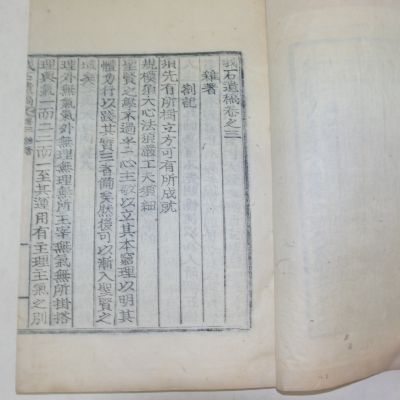 我石遺稿卷之三
雜著
劄記
須先有所樹立方可有所成就
規模須大心法須嚴工夫須細
聖賢之學不過乎一心主敬以立其本窮理以明其
體力行以踐其實三者備矣庶復可以漸入聖賢之
域矣
理外無氣氣外無理無理無所主宰無氣無所掛搭
理與氣一而二二而一至其運用有主理主氣之別